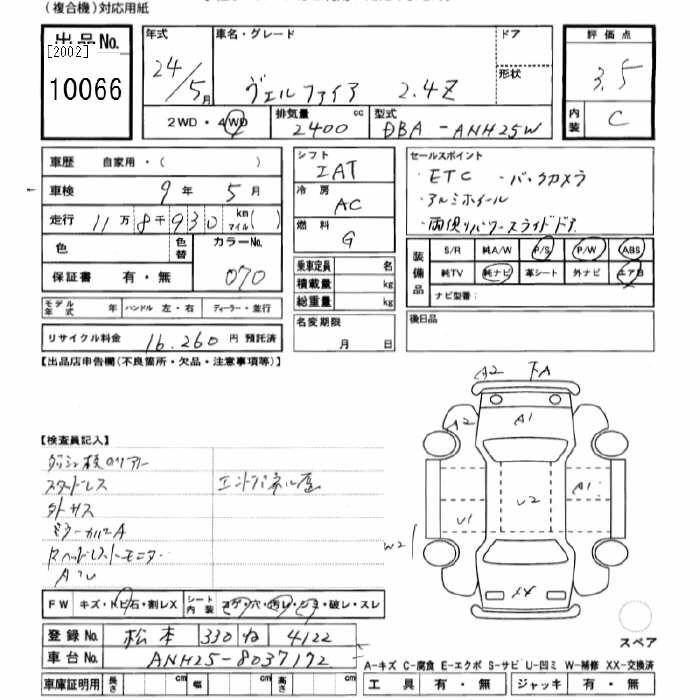 (複合機)対応用紙
出品No.
[2002]
10066
年式 24/5月
車名・グレード ヴェルファイア 2.4Z
ドア
形状
2WD・4WD
排気量 2400 cc
型式 DBA-ANH25W
評価点 3.5
内装 C
車歴 自家用・( )
車検 9年 5月
走行 11万8千930 km マイル( )
色
色替
カラーNo. 070
保証書 有・無
モデル年式 年 ハンドル 左・右 ディーラー・並行
リサイクル料金 16.260円 預託済
シフト IAT
冷房 AC
燃料 G
乗車定員 名
積載量 kg
総重量 kg
名変期限
月 日
セールスポイント
・ETC ・バックカメラ
・アルミホイール
・両側パワースライドドア
装備品
S/R 純A/W P/S P/W ABS
純TV 純ナビ 革シート 外ナビ エアB
ナビ型番:
後日品
【出品店申告欄(不良箇所・欠品・注意事項等)】
A2 下A
A2 A1
A1
U1 U2
W2
XX
【検査員記入】
スタッドレス エンドパネル歪
外ガス
ミラーカバーA
Rヘッドレストモニター
FW キズ・トビ石・割レX
シート内装 コゲ・穴・汚レ・シミ・破レ・スレ
登録No. 松本 330 ね 4122
車台No. ANH25-8037172
車庫証明用 長さ cm 幅 cm 高さ cm
スペア
A-キズ C-腐食 E-エクボ S-サビ U-凹ミ W-補修 XX-交換済
工具 有・無 ジャッキ 有・無